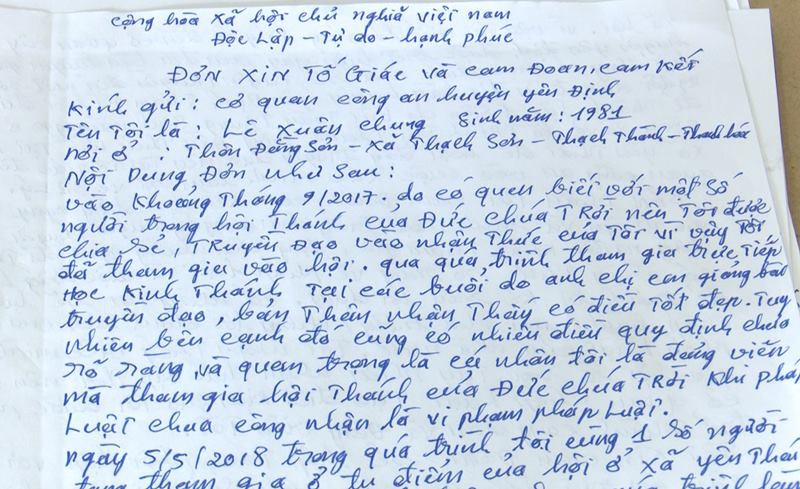 Cộng hòa xã hội chủ nghĩa việt nam
Độc Lập - Tự do - hạnh phúc
ĐƠN XIN TỐ GIÁC và cam ĐOAN, cam Kết
Kính gửi: cơ quan công an huyện yên Định
Tên Tôi là: Lê Xuân chung Sinh năm: 1981
nơi ở: Thôn Đồng Sơn - Xã Thạch Sơn - Thạch Thành - Thanh hóa
Nội Dung Đơn như Sau:
vào Khoảng Tháng 9/2017. do có quen biết với một số
người trong hội Thánh của Đức chúa TRời nên Tôi được
chia sẻ, TRuyền Đạo vào nhận Thức của Tôi vì vậy Tôi
đã tham gia vào hội. qua quá trình tham gia trực tiếp
Học Kinh Thánh Tại các buổi do anh chị em giảng bài
truyền đạo, bản Thân nhận Thấy có điều Tốt đẹp. Tuy
nhiên bên cạnh đó cũng có nhiều điều quy định chưa
rõ ràng và quan trọng là cá nhân tôi là đảng viên
mà tham gia hội Thánh của Đức chúa TRời Khi pháp
Luật chưa công nhận là vi phạm pháp Luật.
ngày 5/5/2018 trong quá trình tôi cùng 1 số người
đang tham gia ở tụ điểm của hội ở xã yên Thái